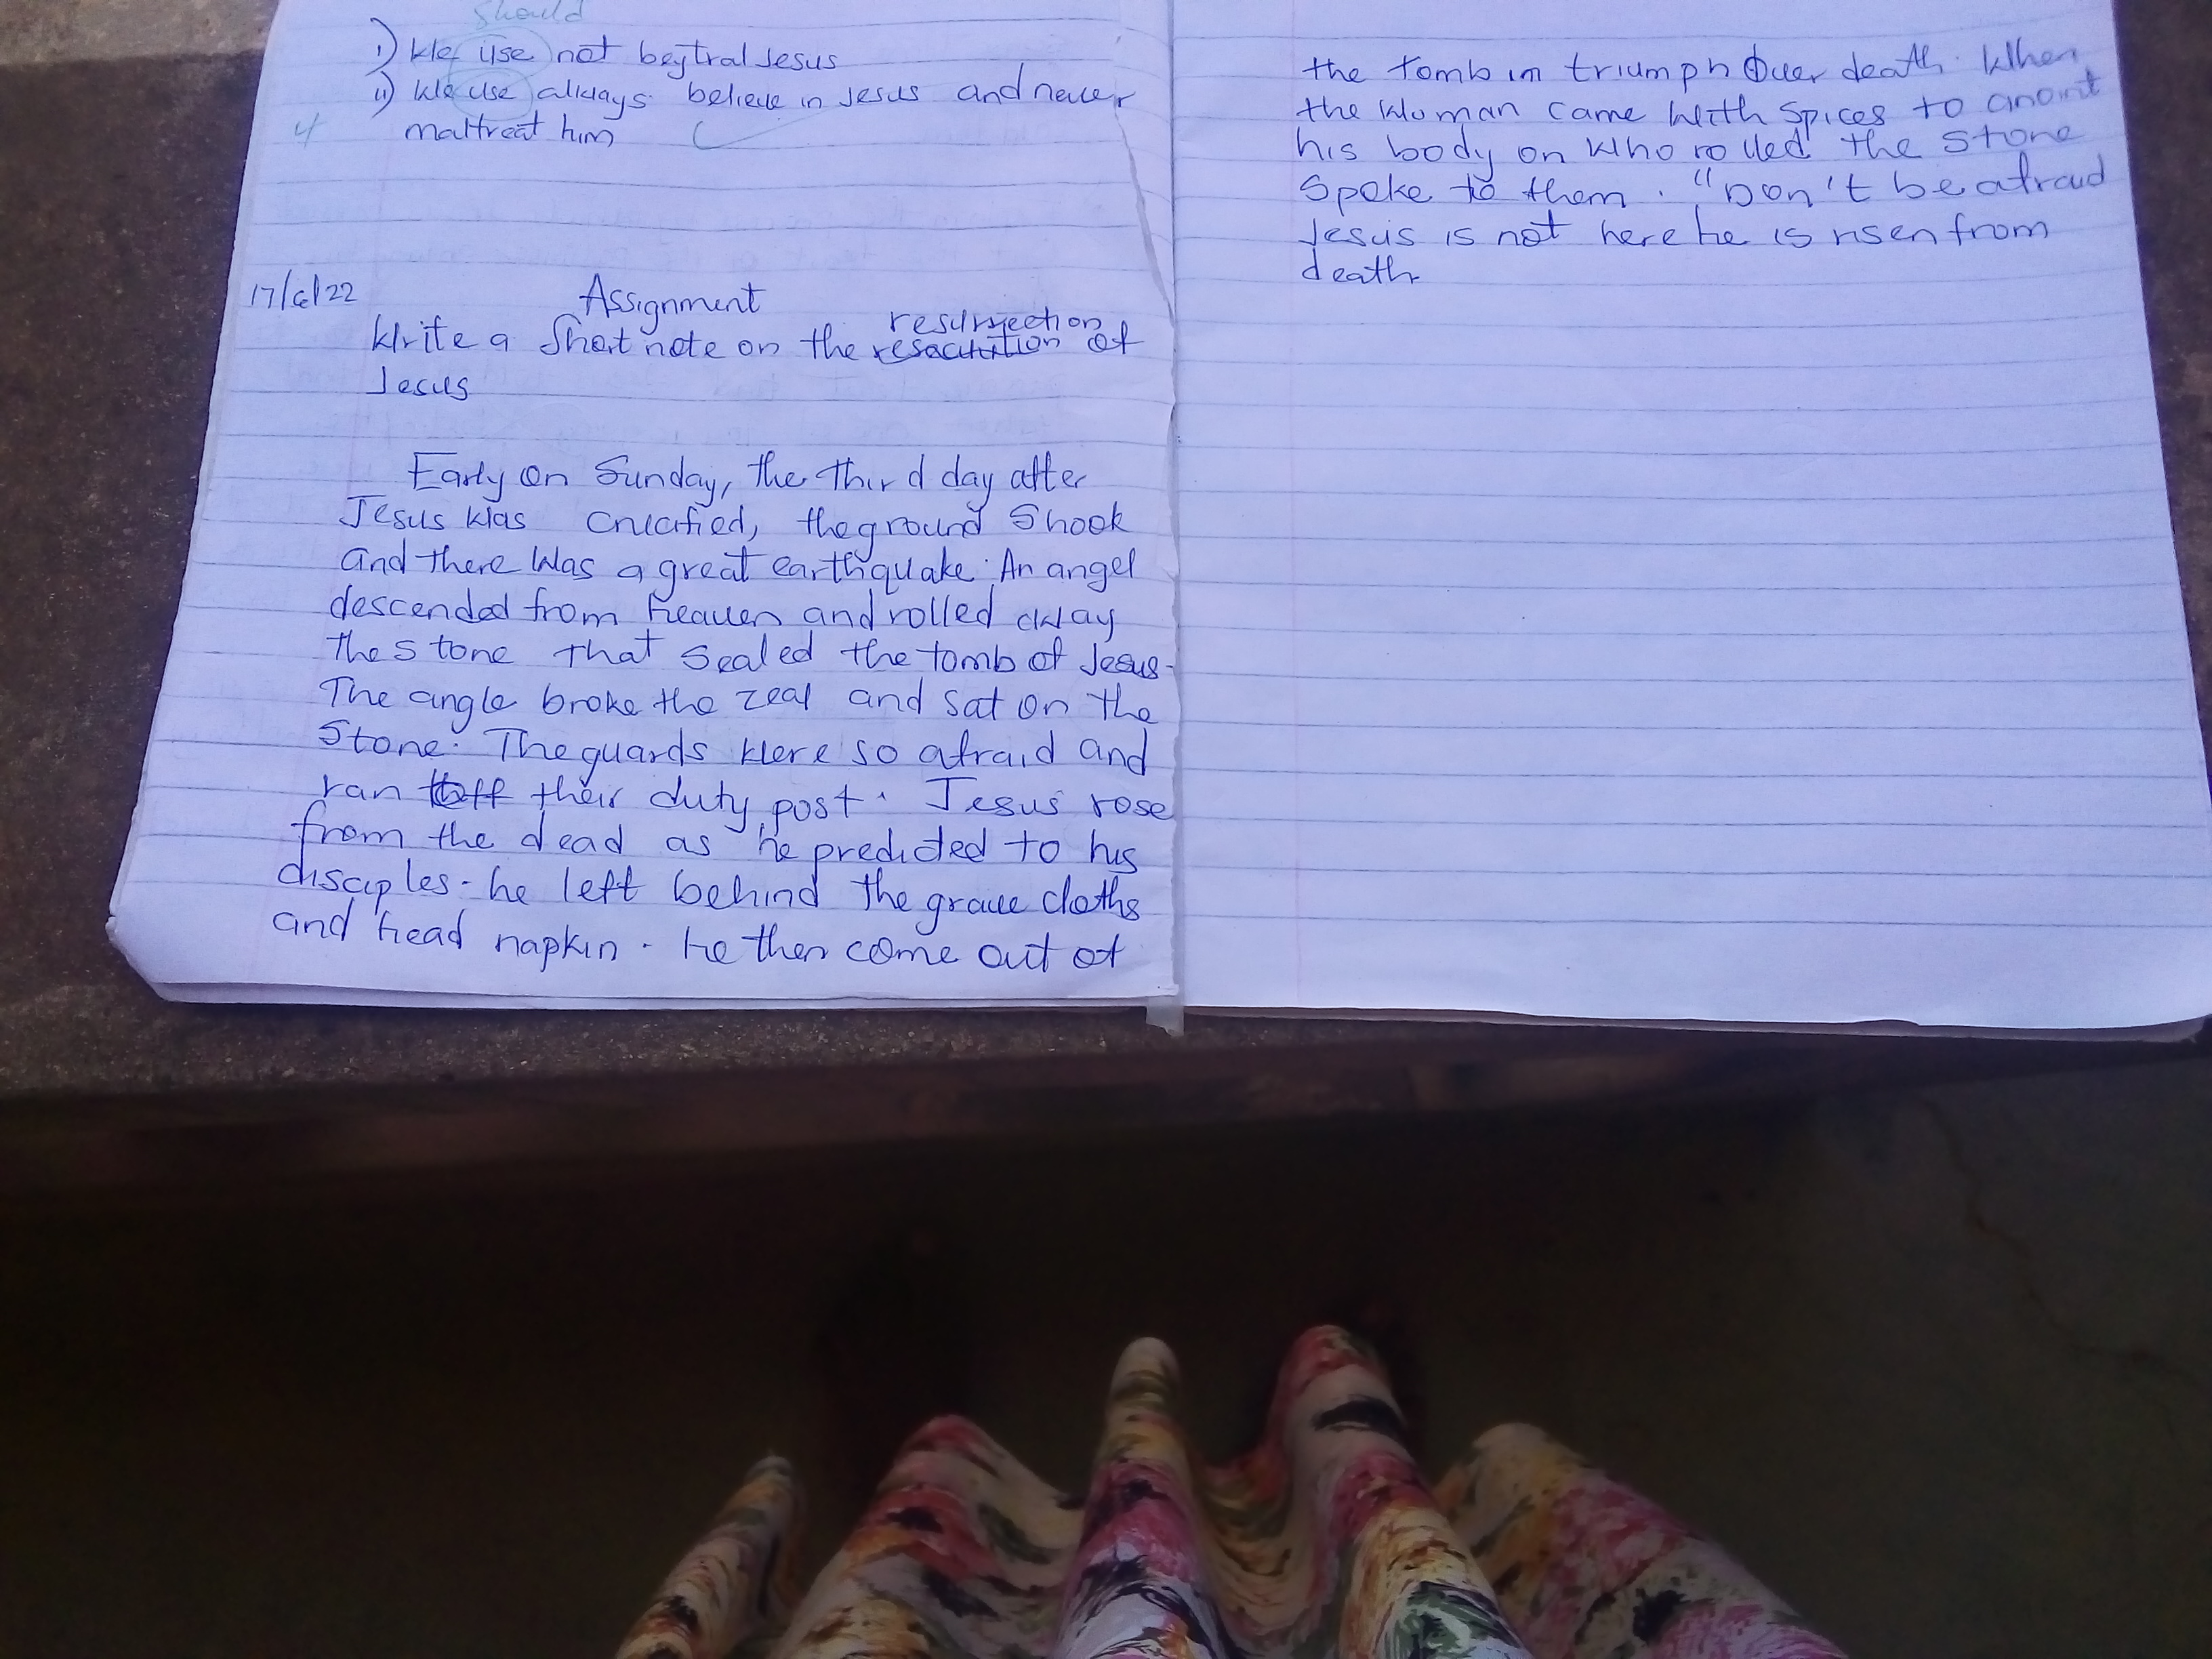 should
i) We use not beytral Jesus
ii) We use always believe in Jesus and never
maltreat him
4
17/6/22
Assignment
Write a Short note on the resurrection of
Jesus
Early on Sunday, the third day after
Jesus was crucified, the ground Shook
and there was a great earthquake. An angel
descended from heaven and rolled away
the stone that sealed the tomb of Jesus.
The angle broke the zeal and sat on the
Stone. The guards were so afraid and
ran off their duty post. Jesus rose
from the dead as he predicted to his
disciples. he left behind the grave cloths
and head napkin. he then come out of
the tomb in triumph Over death. When
the Woman came with spices to anoint
his body on who rolled the stone
Spoke to them. "Don't be afraid
Jesus is not here he is risen from
death